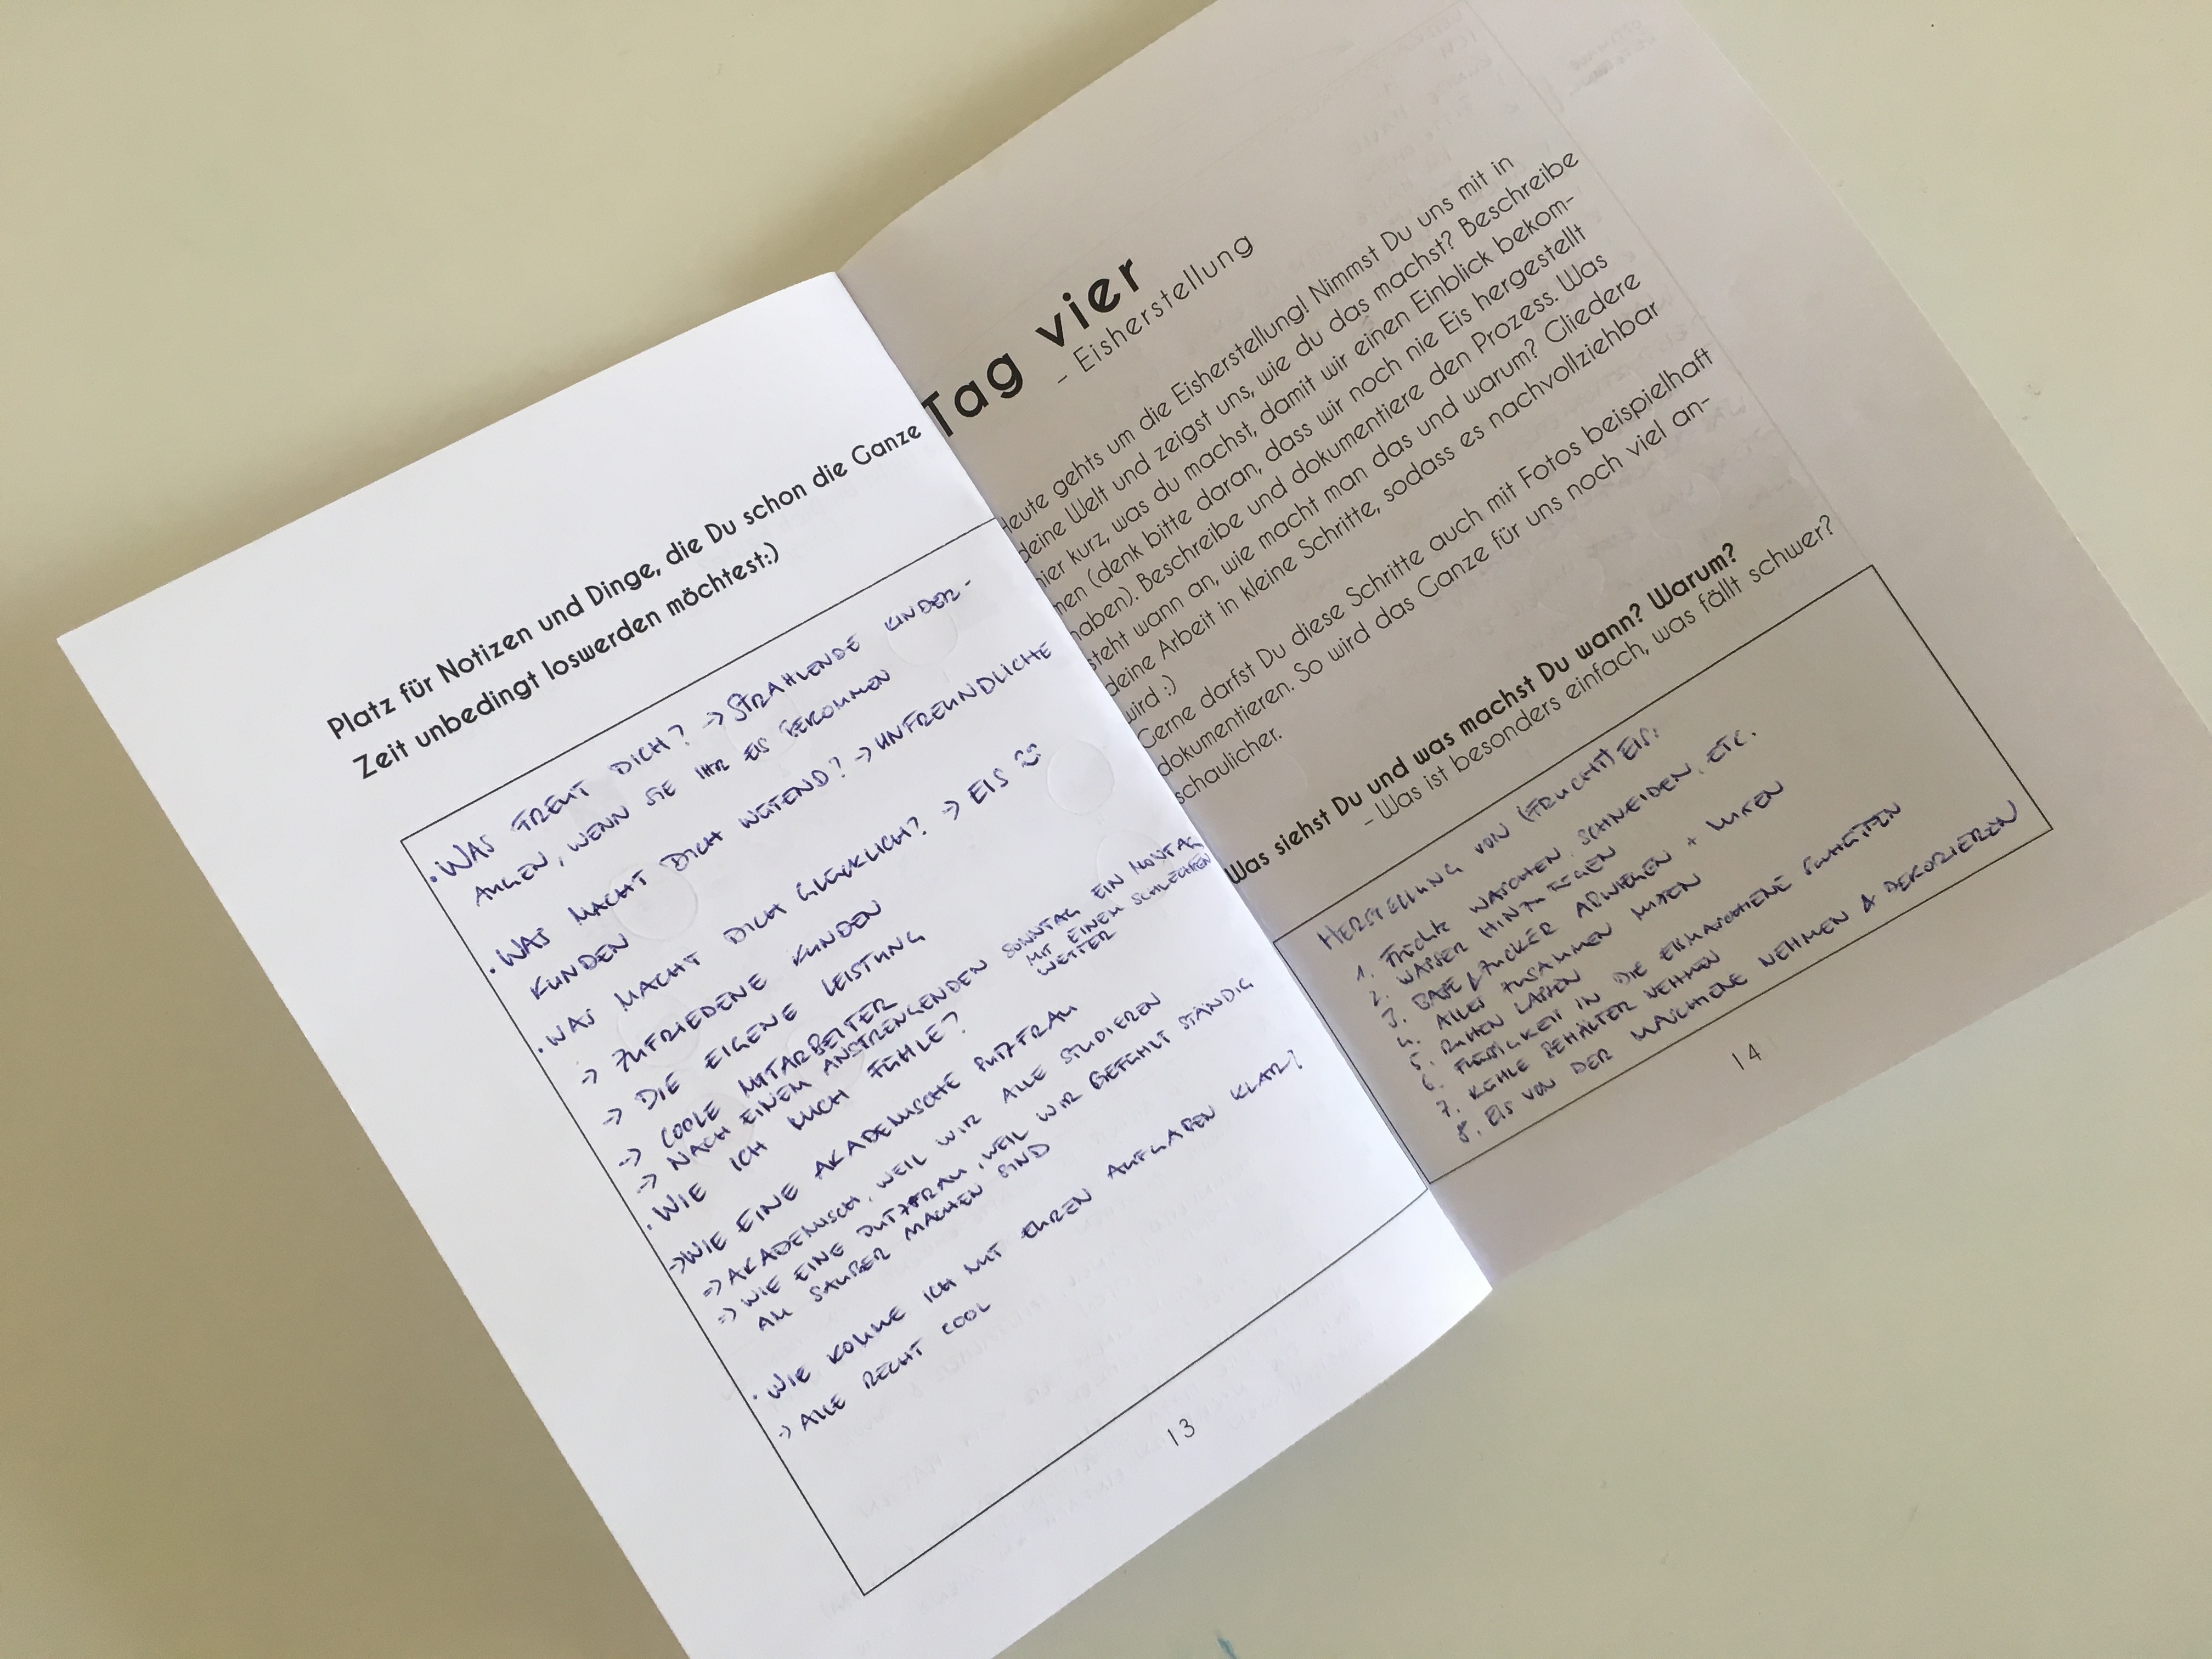 Platz für Notizen und Dinge, die Du schon die Ganze
Zeit unbedingt loswerden möchtest:)
· WAS FREUT DICH? -> STRAHLENDE KINDER-
AUGEN, WENN SIE IHR EIS BEKOMMEN
· WAS MACHT DICH WÜTEND? -> UNFREUNDLICHE
KUNDEN
· WAS MACHT DICH GLÜCKLICH? -> EIS
-> ZUFRIEDENE KUNDEN
-> DIE EIGENE LEISTUNG
-> COOLE MITARBEITER
-> NACH EINEM ANSTRENGENDEN SONNTAG EIN MONTAG
MIT EINEM SCHLECHTEN
WETTER
· WIE ICH MICH FÜHLE?
-> WIE EINE AKADEMISCHE PUTZFRAU
-> AKADEMISCH, WEIL WIR ALLE STUDIEREN
-> WIE EINE PUTZFRAU, WEIL WIR GEFÜHLT STÄNDIG
AM SAUBER MACHEN SIND
· WIE KOMME ICH MIT EUREN AUFGABEN KLAR?
-> ALLE RECHT COOL
13
Tag vier
– Eisherstellung
Heute gehts um die Eisherstellung! Nimmst Du uns mit in
deine Welt und zeigst uns, wie du das machst? Beschreibe
hier kurz, was du machst, damit wir einen Einblick bekom-
men (denk bitte daran, dass wir noch nie Eis hergestellt
haben). Beschreibe und dokumentiere den Prozess. Was
steht wann an, wie macht man das und warum? Gliedere
deine Arbeit in kleine Schritte, sodass es nachvollziehbar
wird :)
Gerne darfst Du diese Schritte auch mit Fotos beispielhaft
dokumentieren. So wird das Ganze für uns noch viel an-
schaulicher.
Was siehst Du und was machst Du wann? Warum?
– Was ist besonders einfach, was fällt schwer?
HERSTELLUNG VON (FRUCHT) EIS:
1. FRÜCHTE WASCHEN, SCHNEIDEN, ETC.
2. WASSER HINZUFÜGEN
3. BASE/ZUCKER ABWIEGEN + MIXEN
4. ALLES ZUSAMMEN MIXEN
5. RUHEN LASSEN
6. FLÜSSIGKEIT IN DIE EISMASCHINE SCHÜTTEN
7. KÜHLE BEHÄLTER NEHMEN
8. EIS VON DER MASCHINE NEHMEN & DEKORIEREN
14